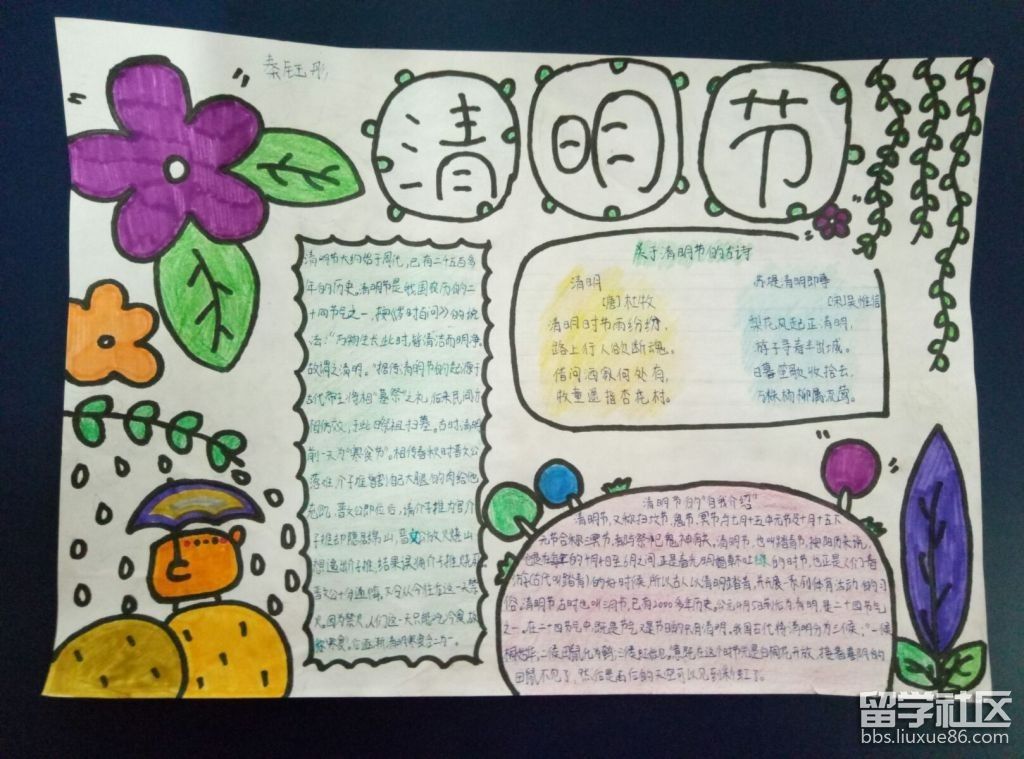 秦钰彤
清明节
清明节大约始于周代，已有二千五百多
年的历史。清明节是我国农历的二
十四节气之一，按《岁时百问》的统
法：“万物生长此时，皆清洁而明净。
故谓之清明。”据传清明节的起源于
古代帝王将相“墓祭”之礼，后来民间
相仿效，于此日祭祖扫墓。古时，清明
前一天为“寒食节”。相传春秋时晋文公
落难，介子推割自己大腿的肉给他
充饥，晋文公即位后，请介子推为官，介
子推却隐居绵山，晋文公放火烧山
想逼出介子推，结果误伤介子推
晋文公十分
火，国节禁火，人们这一天只能吃冷食，故
称寒食。
关于清明节的古诗
清明
[唐]杜牧
清明时节雨纷纷，
路上行人欲断魂。
借问酒家何处有，
牧童遥指杏花村。
苏堤清明即事
[宋]吴惟信
梨花风起正清明，
游子寻春半出城。
日暮笙歌收拾去，
万株杨柳属流莺。
清明节的“自我介绍”
清明节，又称扫坟节、鬼节、冥节与七月十五中元节及十月十五下
元节合称三冥节，都与祭祀鬼神有关。清明节，也叫踏青节，按阳历来说，
的时节，也正是人们春
游（古代叫踏青）的好时候，所以古人以清明踏青，并开展一系列体育活动的习
俗。清明节，古时也叫三月节，已有2000多年历史。公元4月5日前后为清明，是二十四节气
之一。在二十四节气中，既是节气又是节日的只有清明。我国古代将清明分为三候：“一候
桐始华，二候田鼠化为鹌，三候虹始见。”意即在这个时节先是白桐花开放，接着喜阴的
田鼠不见了，然后是雨后的天空可以见到彩虹了。
留学社区
bbs.liuxue86.com